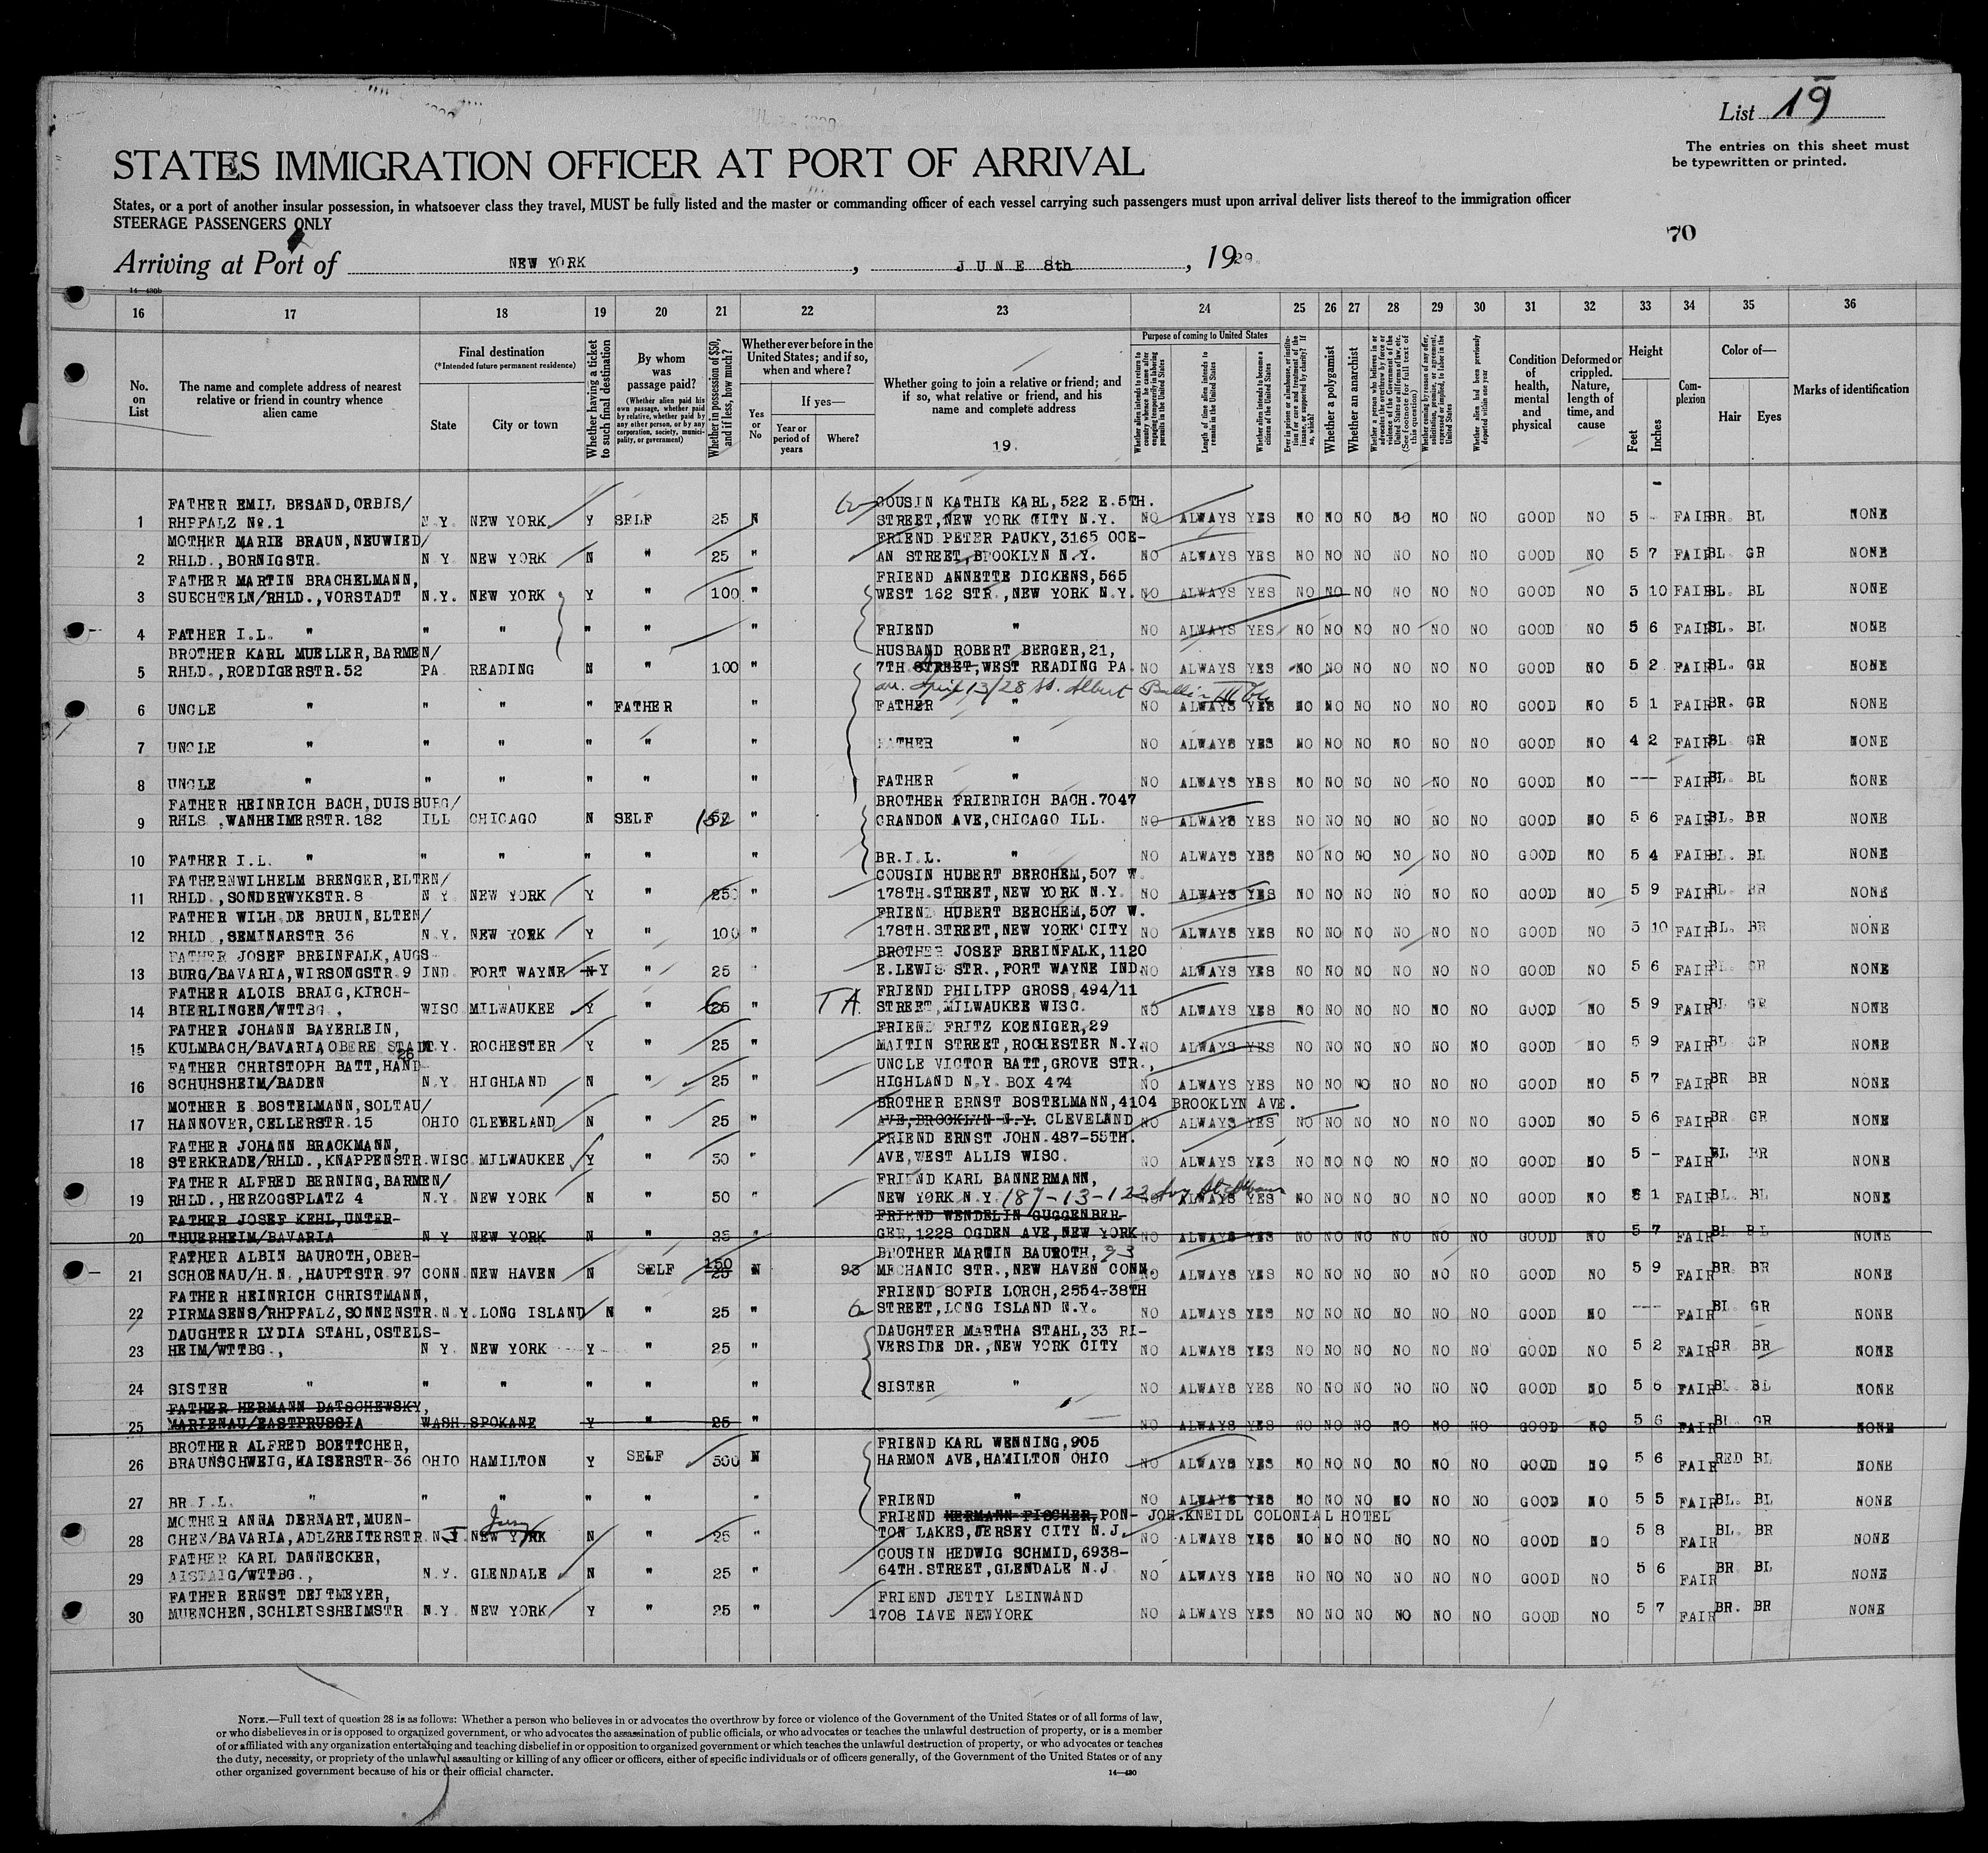 List 19
The entries on this sheet must
be typewritten or printed.
STATES IMMIGRATION OFFICER AT PORT OF ARRIVAL
States, or a port of another insular possession, in whatsoever class they travel, MUST be fully listed and the master or commanding officer of each vessel carrying such passengers must upon arrival deliver lists thereof to the immigration officer
STEERAGE PASSENGERS ONLY
70
Arriving at Port of NEW YORK, JUNE 8th, 1929
16 17 18 19 20 21 22 23 24 25 26 27 28 29 30 31 32 33 34 35 36
No. on List
The name and complete address of nearest relative or friend in country whence alien came
Final destination
(*Intended future permanent residence)
State
City or town
Whether having a ticket to such final destination
By whom was passage paid?
(Whether alien paid his own passage, whether paid by relative, whether paid by any other person, or by any corporation, society, municipality, or government)
Whether in possession of $50, and if less, how much?
Whether ever before in the United States; and if so, when and where?
Yes or No
If yes—
Year or period of years
Where?
Whether going to join a relative or friend; and if so, what relative or friend, and his name and complete address
19.
Purpose of coming to United States
Length of time alien intends to remain in the United States
Whether alien intends to become a citizen of the United States
Whether a polygamist
Whether an anarchist
Whether alien had been previously deported within one year
Condition of health, mental and physical
Deformed or crippled. Nature, length of time, and cause
Height
Feet
Inches
Complexion
Color of—
Hair
Eyes
Marks of identification
FATHER EMIL BESAND, ORBIS/ COUSIN KATHIE KARL, 522 E. 5TH.
1 RHPFALZ No. 1 N.Y. NEW YORK Y SELF 25 N STREET, NEW YORK CITY N.Y. NO ALWAYS YES NO NO NO NO NO NO GOOD NO 5 - FAIR BR. BL NONE
MOTHER MARIE BRAUN, NEUWIED/ FRIEND PETER PAUKY, 3165 OCE-
2 RHLD., BORNIGSTR. N.Y. NEW YORK N " 25 " AN STREET, BROOKLYN N.Y. NO ALWAYS YES NO NO NO NO NO NO GOOD NO 5 7 FAIR BL GR NONE
FATHER MARTIN BRACHELMANN, FRIEND ANNETTE DICKENS, 565
3 SUECHTELN/RHLD., VORSTADT N.Y. NEW YORK Y " 100 " WEST 162 STR., NEW YORK N.Y. NO ALWAYS YES NO NO NO NO NO NO GOOD NO 5 10 FAIR BL. BL NONE
4 FATHER I.L. " " " " " " FRIEND " NO ALWAYS YES NO NO NO NO NO NO GOOD NO 5 6 FAIR BL. BL NONE
BROTHER KARL MUELLER, BARMEN/ HUSBAND ROBERT BERGER, 21,
5 RHLD., ROEDIGERSTR. 52 PA READING N " 100 " 7TH STREET, WEST READING PA. NO ALWAYS YES NO NO NO NO NO NO GOOD NO 5 2 FAIR BL. GR NONE
arr. April 13/28 ss. Albert Ballin III
6 UNCLE " " " " FATHER " FATHER " NO ALWAYS YES NO NO NO NO NO NO GOOD NO 5 1 FAIR BR. GR NONE
7 UNCLE " " " " " " FATHER " NO ALWAYS YES NO NO NO NO NO NO GOOD NO 4 2 FAIR BL GR NONE
8 UNCLE " " " " " " FATHER " NO ALWAYS YES NO NO NO NO NO NO GOOD NO --- FAIR BL. BL NONE
FATHER HEINRICH BACH, DUISBURG/ BROTHER FRIEDRICH BACH. 7047
9 RHLS., WANHEIMERSTR. 182 ILL CHICAGO N SELF 152 " CRANDON AVE, CHICAGO ILL. NO ALWAYS YES NO NO NO NO NO NO GOOD NO 5 6 FAIR BL. BR NONE
10 FATHER I.L. " " " " " " BR.I.L. " NO ALWAYS YES NO NO NO NO NO NO GOOD NO 5 4 FAIR BL. BL NONE
FATHERNWILHELM BRENGER, ELTEN/ COUSIN HUBERT BERCHEM, 507 W.
11 RHLD., SONDERWYKSTR. 8 N.Y. NEW YORK Y " 250 " 178TH. STREET, NEW YORK N.Y. NO ALWAYS YES NO NO NO NO NO NO GOOD NO 5 9 FAIR BL. BR NONE
FATHER WILH. DE BRUIN, ELTEN/ FRIEND HUBERT BERCHEM, 507 W.
12 RHLD., SEMINARSTR 36 N.Y. NEW YORK Y " 100 " 178TH. STREET, NEW YORK CITY NO ALWAYS YES NO NO NO NO NO NO GOOD NO 5 10 FAIR BL. BR NONE
FATHER JOSEF BREINFALK, AUGS- BROTHER JOSEF BREINFALK, 1120
13 BURG/BAVARIA, WIRSONGSTR. 9 IND. FORT WAYNE N Y " 25 " E. LEWIS STR., FORT WAYNE IND. NO ALWAYS YES NO NO NO NO NO NO GOOD NO 5 6 FAIR BL. GR NONE
FATHER ALOIS BRAIG, KIRCH- FRIEND PHILIPP GROSS, 494/11
14 BIERLINGEN/WTTBG., WISC MILWAUKEE Y " 25 " T A. STREET, MILWAUKEE WISC. NO ALWAYS YES NO NO NO NO NO NO GOOD NO 5 9 FAIR BL GR NONE
FATHER JOHANN BAYERLEIN, FRIEND FRITZ KOENIGER, 29
15 KULMBACH/BAVARIA, OBERE STADT 26 N.Y. ROCHESTER Y " 25 " MAITIN STREET, ROCHESTER N.Y. NO ALWAYS YES NO NO NO NO NO NO GOOD NO 5 9 FAIR BL GR NONE
FATHER CHRISTOPH BATT, HAND- UNCLE VICTOR BATT, GROVE STR.,
16 SCHUHSHEIM/BADEN N.Y. HIGHLAND N " 25 " HIGHLAND N.Y. BOX 474 NO ALWAYS YES NO NO NO NO NO NO GOOD NO 5 7 FAIR BR BR NONE
MOTHER E BOSTELMANN, SOLTAU/ BROTHER ERNST BOSTELMANN, 4104 BROOKLYN AVE.
17 HANNOVER, CELLERSTR. 15 OHIO CLEVELAND N " 25 " AVE, BROOKLYN N.Y. CLEVELAND NO ALWAYS YES NO NO NO NO NO NO GOOD NO 5 6 FAIR BR. GR NONE
FATHER JOHANN BRACKMANN, FRIEND ERNST JOHN. 487-55TH.
18 STERKRADE/RHLD., KNAPPENSTR. WISC. MILWAUKEE Y " 50 " AVE, WEST ALLIS WISC. NO ALWAYS YES NO NO NO NO NO NO GOOD NO 5 - FAIR BL BR NONE
FATHER ALFRED BERNING, BARMEN/ FRIEND KARL BANNERMANN,
19 RHLD., HERZOGSPLATZ 4 N.Y. NEW YORK N " 50 " NEW YORK N.Y. 187-13-122 Av St Albans NO ALWAYS YES NO NO NO NO NO NO GOOD NO 6 1 FAIR BL. BL NONE
FATHER JOSEF KEHL, UNTER- FRIEND WENDELIN GUGGENBER-
20 THUERHEIM/BAVARIA N.Y. NEW YORK N " 25 " GER, 1228 OGDEN AVE, NEW YORK NO ALWAYS YES NO NO NO NO NO NO GOOD NO 5 7 FAIR BL BL NONE
FATHER ALBIN BAUROTH, OBER- BROTHER MARTIN BAUROTH, 93
21 SCHOENAU/H.N., HAUPTSTR. 97 CONN. NEW HAVEN N SELF 150 25 N 93 MECHANIC STR., NEW HAVEN CONN. NO ALWAYS YES NO NO NO NO NO NO GOOD NO 5 9 FAIR BR. BR NONE
FATHER HEINRICH CHRISTMANN, FRIEND SOFIE LORCH, 2554-38TH
22 PIRMASENS/RHPFALZ, SONNENSTR. N.Y. LONG ISLAND N " 25 " STREET, LONG ISLAND N.Y. NO ALWAYS YES NO NO NO NO NO NO GOOD NO --- FAIR BL. GR NONE
DAUGHTER LYDIA STAHL, OSTELS- DAUGHTER MARTHA STAHL, 33 RI-
23 HEIM/WTTBG., N.Y. NEW YORK Y " 25 " VERSIDE DR., NEW YORK CITY NO ALWAYS YES NO NO NO NO NO NO GOOD NO 5 2 FAIR GR BR NONE
24 SISTER " " " " " " SISTER " NO ALWAYS YES NO NO NO NO NO NO GOOD NO 5 6 FAIR BL BL NONE
FATHER HERMANN DATSCHEWSKY,
25 MARIENAU/EASTPRUSSIA WASH. SPOKANE Y " 25 " NO ALWAYS YES NO NO NO NO NO NO GOOD NO 5 6 FAIR BL. GR NONE
BROTHER ALFRED BOETTCHER, FRIEND KARL WENNING, 905
26 BRAUNSCHWEIG, KAISERSTR-36 OHIO HAMILTON Y SELF 500 N HARMON AVE, HAMILTON OHIO NO ALWAYS YES NO NO NO NO NO NO GOOD NO 5 6 FAIR RED BL NONE
27 BR I.L. " " " " " " FRIEND " NO ALWAYS YES NO NO NO NO NO NO GOOD NO 5 5 FAIR BL. BL NONE
MOTHER ANNA DERNART, MUEN- FRIEND HERMANN FISCHER, PON- JOH. KNEIDL COLONIAL HOTEL
28 CHEN/BAVARIA, ADLZREITERSTR. N.J. NEW YORK Jersey N " 25 " TON LAKES, JERSEY CITY N.J. NO ALWAYS YES NO NO NO NO NO NO GOOD NO 5 8 FAIR BL. BR NONE
FATHER KARL DANNECKER, COUSIN HEDWIG SCHMID, 6938-
29 AISTAIG/WTTBG., N.Y. GLENDALE N " 25 " 64TH. STREET, GLENDALE N.J NO ALWAYS YES NO NO NO NO NO NO GOOD NO 5 6 FAIR BR BL NONE
FATHER ERNST DEITMEYER, FRIEND JETTY LEINWAND
30 MUENCHEN, SCHLEISSHEIMSTR N.Y. NEW YORK Y " 25 " 1708 IAVE NEWYORK NO ALWAYS YES NO NO NO NO NO NO GOOD NO 5 7 FAIR BR. BR NONE
NOTE.—Full text of question 28 is as follows: Whether a person who believes in or advocates the overthrow by force or violence of the Government of the United States or of all forms of law,
or who disbelieves in or is opposed to organized government, or who advocates the assassination of public officials, or who advocates or teaches the unlawful destruction of property, or is a member
of or affiliated with any organization entertaining and teaching disbelief in or opposition to organized government or which teaches the unlawful destruction of property, or who advocates or teaches
the duty, necessity, or propriety of the unlawful assaulting or killing of any officer or officers, either of specific individuals or of officers generally, of the Government of the United States or of any
other organized government because of his or their official character.
14—430